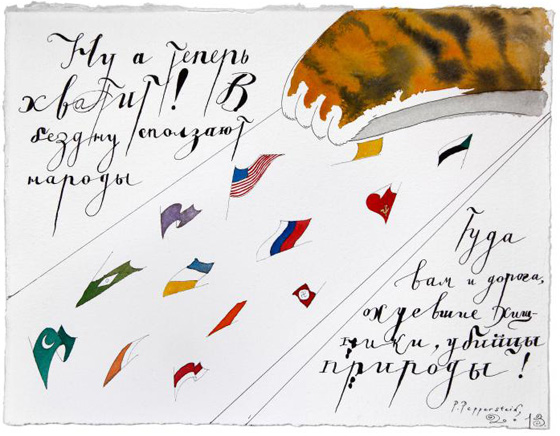 Ну а теперь
хватит! В
бездну сползают
народы
Туда
вам и дорога,
ождевшие хищ-
ники, убийцы
природы!
P. Pepperstein
2013